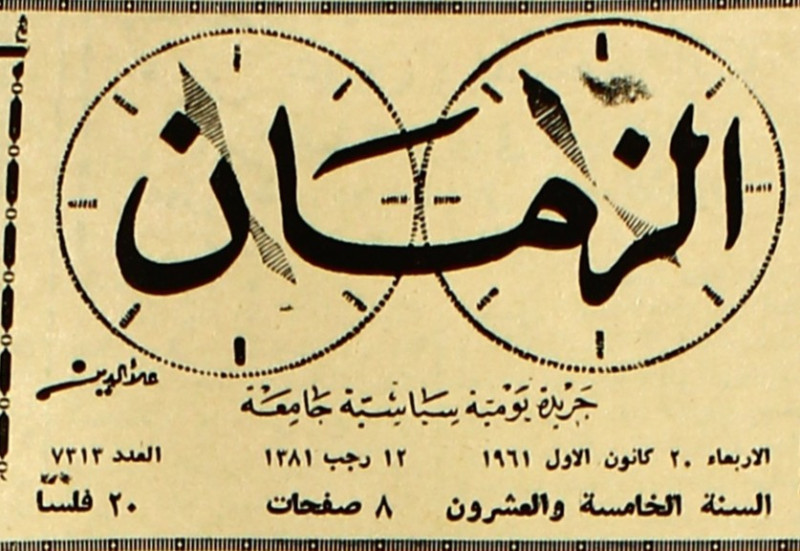 الزمان
علاء الدين
جريدة يومية سياسية جامعة
الاربعاء ٢٠ كانون الاول ١٩٦١ ١٢ رجب ١٣٨١ العدد ٧٣١٣
السنة الخامسة والعشرون ٨ صفحات ٢٠ فلسا